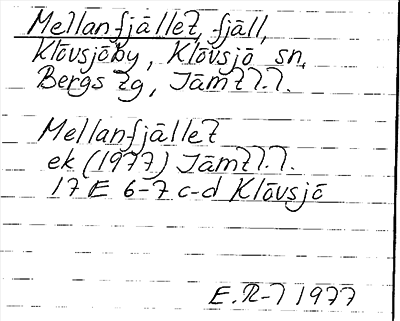 Mellanfjället, fjäll,
Klövsjöby, Klövsjö sn,
Bergs tg, Jämtl.l.
Mellanfjället
ek (1977) Jämtl.l.
17 E 6-7 c-d Klövsjö
1977